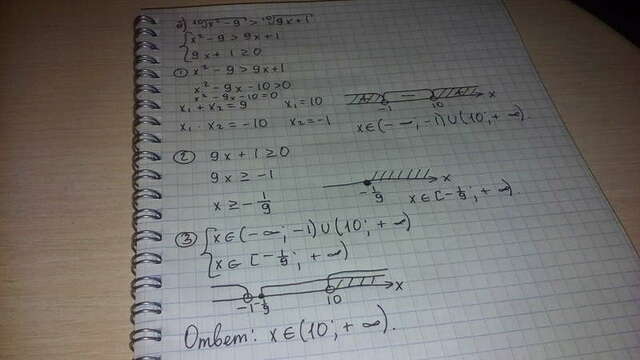 б) ¹⁰√x² - 9 > ¹⁰√9x + 1
{ x² - 9 > 9x + 1
{ 9x + 1 ≥ 0
① x² - 9 > 9x + 1
x² - 9x - 10 > 0
x² - 9x - 10 = 0
x₁ + x₂ = 9 x₁ = 10
x₁ · x₂ = -10 x₂ = -1
+ - + x
-1 10
x ∈ (- ∞; -1) ∪ (10; + ∞)
② 9x + 1 ≥ 0
9x ≥ -1
x ≥ - 1/9
x
- 1/9
x ∈ [- 1/9; + ∞)
③ { x ∈ (- ∞; -1) ∪ (10; + ∞)
{ x ∈ [- 1/9; + ∞)
x
-1 - 1/9 10
Ответ: x ∈ (10; + ∞).